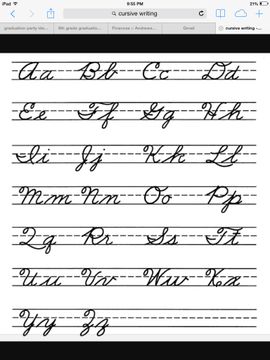 iPad 9:55 PM 21%
cursive writing
graduation party ide... 6th grade graduatio... Finances :: Andrews... Gmail cursive writing -...
Aa Bb Cc Dd
Ee Ff Gg Hh
Ii Jj Kk Ll
Mm Nn Oo Pp
Qq Rr Ss Tt
Uu Vv Ww Xx
Yy Zz